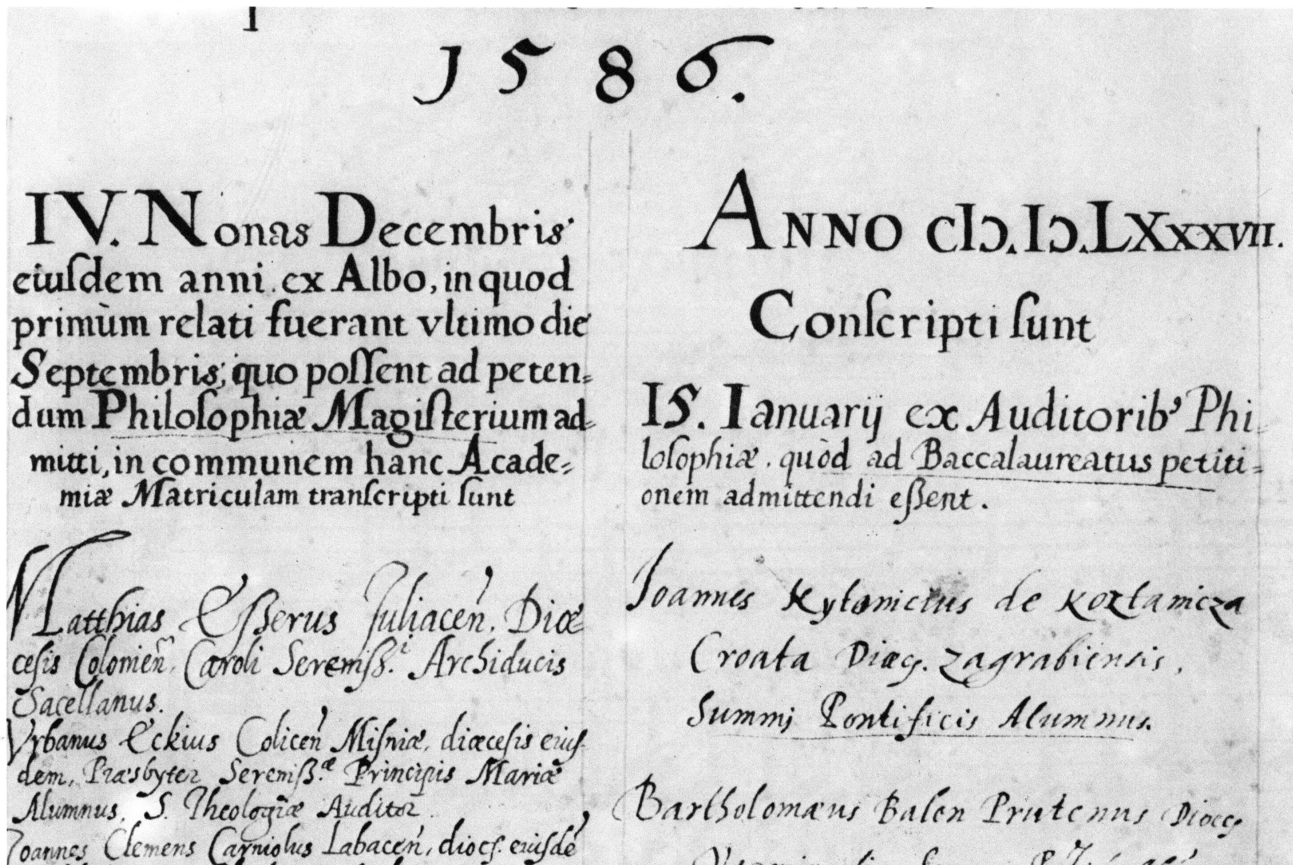 1586.
IV. Nonas Decembris
eiuſdem anni ex Albo, in quod
primùm relati fuerant vltimo die
Septembris, quo poſſent ad peten⸗
dum Philoſophiæ Magiſterium ad⸗
mitti, in communem hanc Acade⸗
miæ Matriculam tranſcripti ſunt
Matthias Eſſerus Juliaceñ. Diœ
ceſis Colonieñ, Caroli Sereniß. Archiducis
Sacellanus.
Vrbanus Eckius Coliceñ Miſniæ, diœceſis eiuſ
dem, Præsbyter Sereniß.æ Principis Mariæ
Alumnus, S. Theologiæ Auditor.
Ioannes Clemens Carniolus Labaceñ, diœſ. eiuſdē
ANNO CIƆ.IƆ.LXXXVII.
Conſcripti ſunt
15. Ianuarij ex Auditorib9 Phi⸗
loſophiæ, quòd ad Baccalaureatus petiti⸗
onem admittendi eßent.
Ioannes Kytonicius de Koztanicza
Croata Diœc. Zagrabiensis,
Summj Pontificis Alumnus.
Bartholomæus Balen Prutenus Diœc.